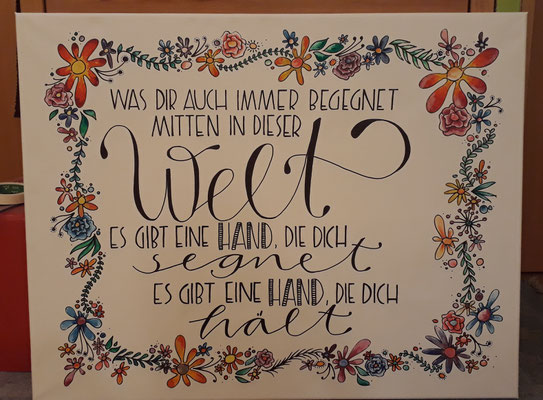 WAS DIR AUCH IMMER BEGEGNET
MITTEN IN DIESER
Welt
ES GIBT EINE HAND, DIE DICH
segnet
ES GIBT EINE HAND, DIE DICH
hält